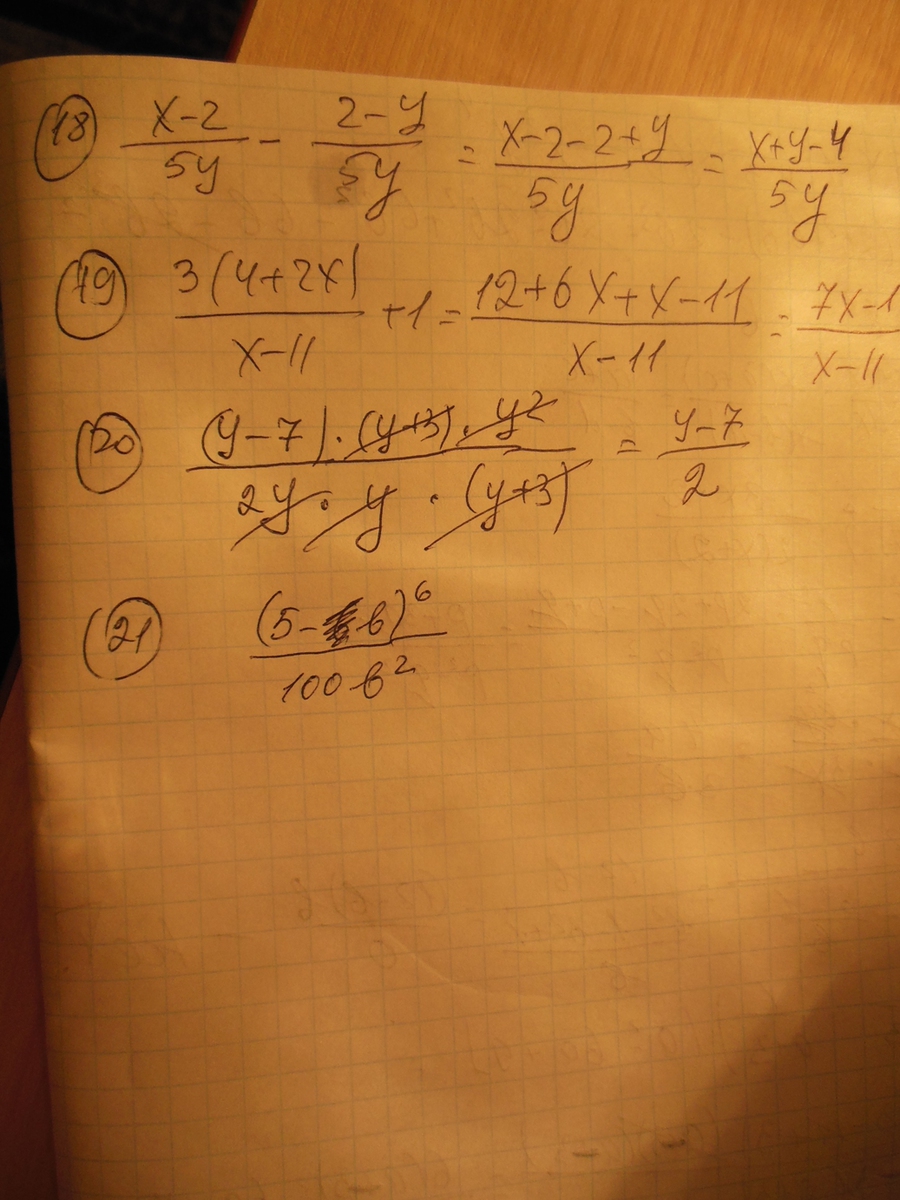 18 (x-2)/(5y) - (2-y)/(5y) = (x-2-2+y)/(5y) = (x+y-4)/(5y)
19 3(4+2x)/(x-11) +1 = (12+6x+x-11)/(x-11) = (7x-1)/(x-11)
20 ((y-7)·(y+3)·y²)/(2y·y·(y+3)) = (y-7)/2
21 (5-b)⁶/(100b²)